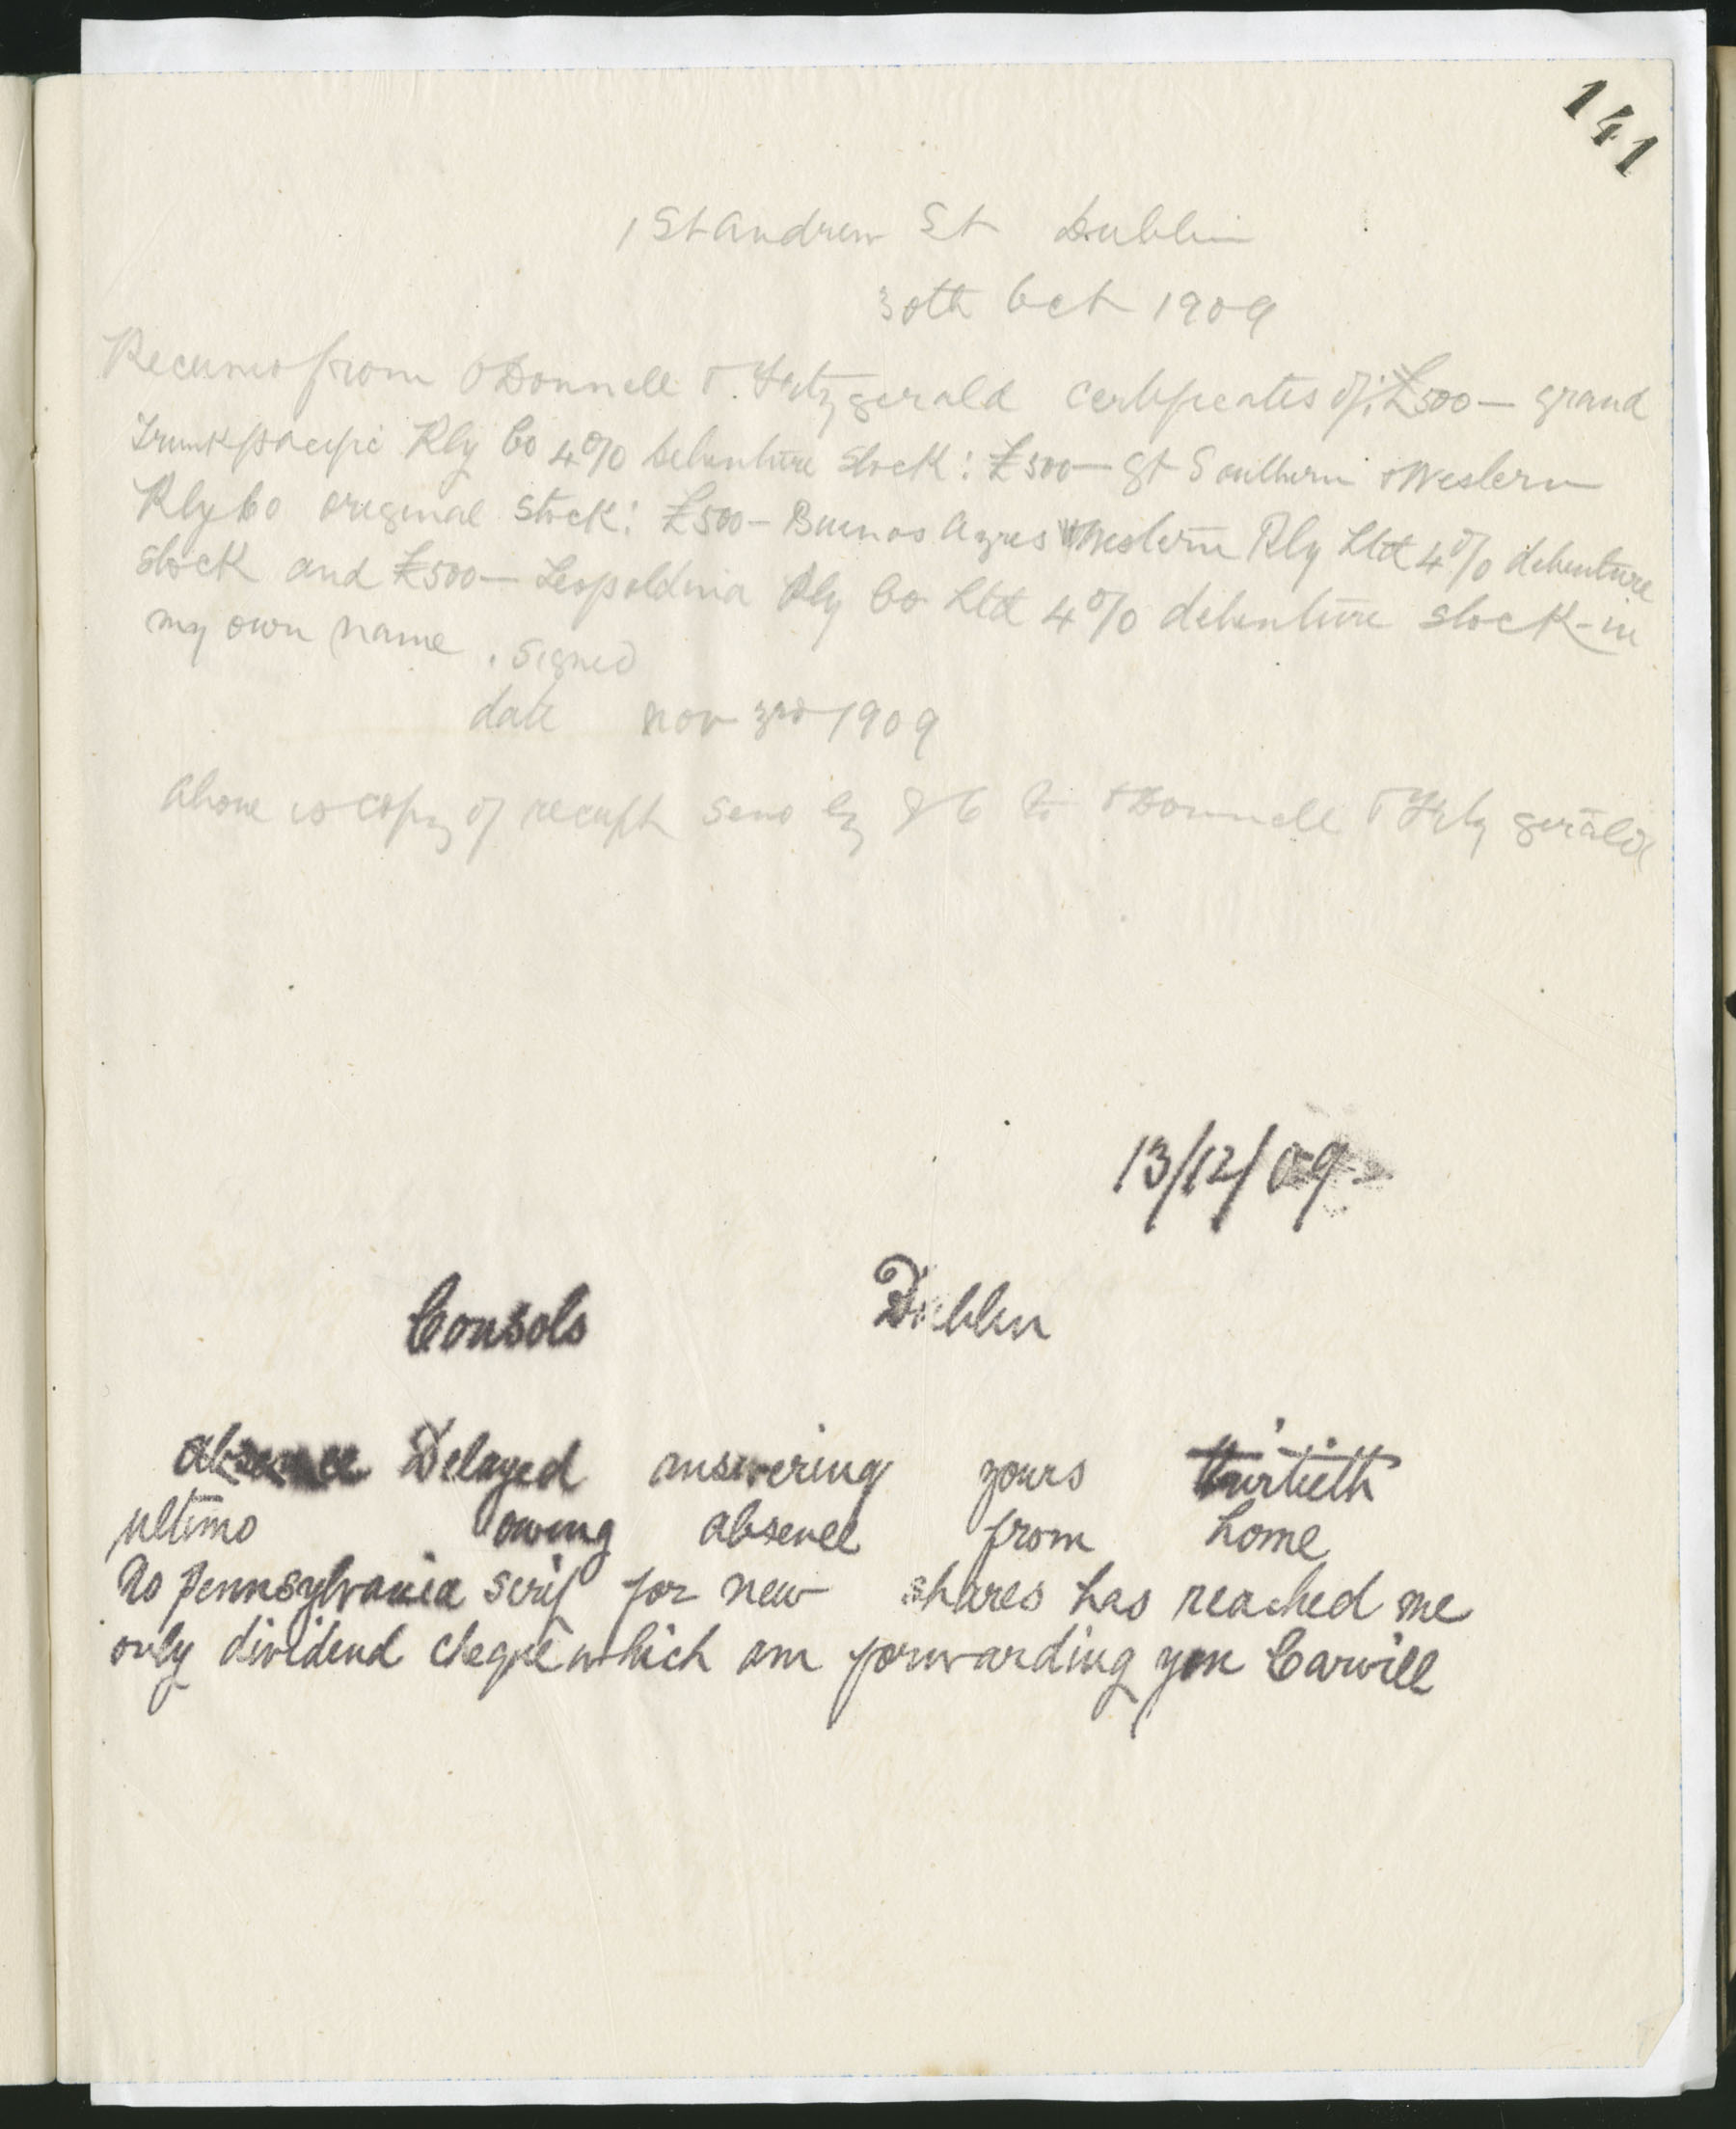 141
1 St Andrew St Dublin
30th Oct 1909
Received from O'Donnell & Fitzgerald certificates of: £500 — grand
Trunk pacific Rly Co 4% debenture stock: £500 — gt Southern & Western
Rly Co original stock: £500 — Buenos Ayres Western Rly Ltd 4% debenture
stock and £500 — Leopoldina Rly Co Ltd 4% debenture stock — in
my own name. Signed
date nov 3rd 1909
above is copy of receipt send by to O'Donnell & Fitzgerald
13/12/09
Consols Dublin
absence Delayed answering yours thirtieth
ultimo owing absence from home
No pennsylvania scrip for new shares has reached me
only dividend cheque which am forwarding you Carvill